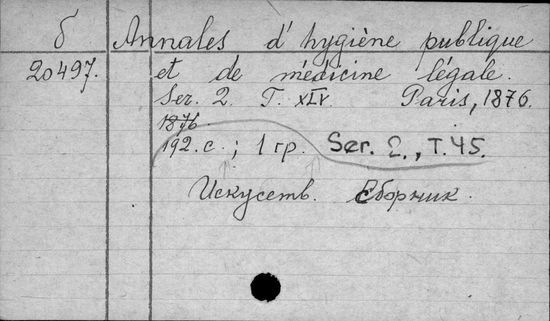 б Annales d'hygiène publique
20497. et de médicine légale.
Ser. 2. T. XLV. Paris, 1876.
1876
192. с.; 1 гр. Ser. 2., Т. 45.
Искусств. Сборник.